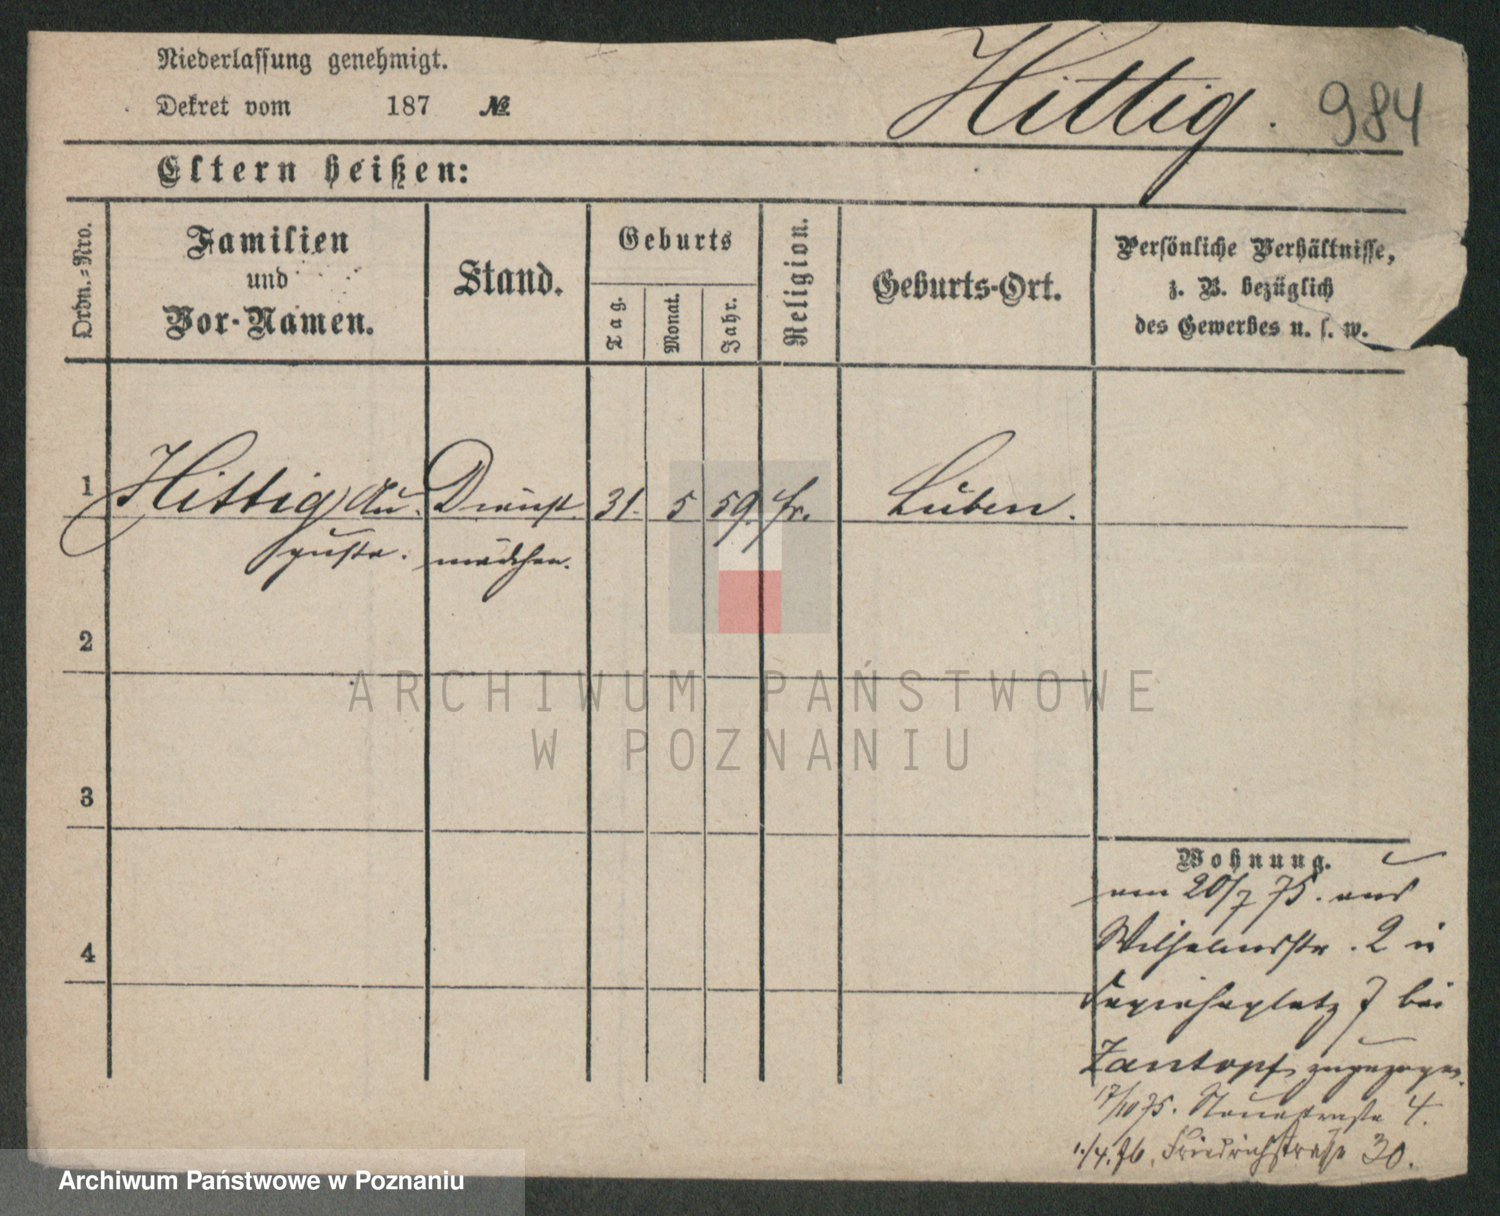 Niederlassung genehmigt.
Dekret vom 187 №
Hittig. 984
Eltern heißen:
Ordn.-Nro.
Familien
und
Vor-Namen.
Stand.
Geburts
Tag.
Monat.
Jahr.
Religion.
Geburts-Ort.
Persönliche Verhältnisse,
z. B. bezüglich
des Gewerbes u. s. w.
1 Hittig Au- Dienst 31. 5 59. Lüben.
guste. mädchen.
2
3
4
Wohnung.
am 20/7 75. aus
Wilhelmsstr. 2 in
Sapiehaplatz 7 bei
Zantopf zugezogen.
17/10 75. Neuestraße 4.
1./4. 76. Friedrichstraße 30.
ARCHIWUM PAŃSTWOWE
W POZNANIU
Archiwum Państwowe w Poznaniu